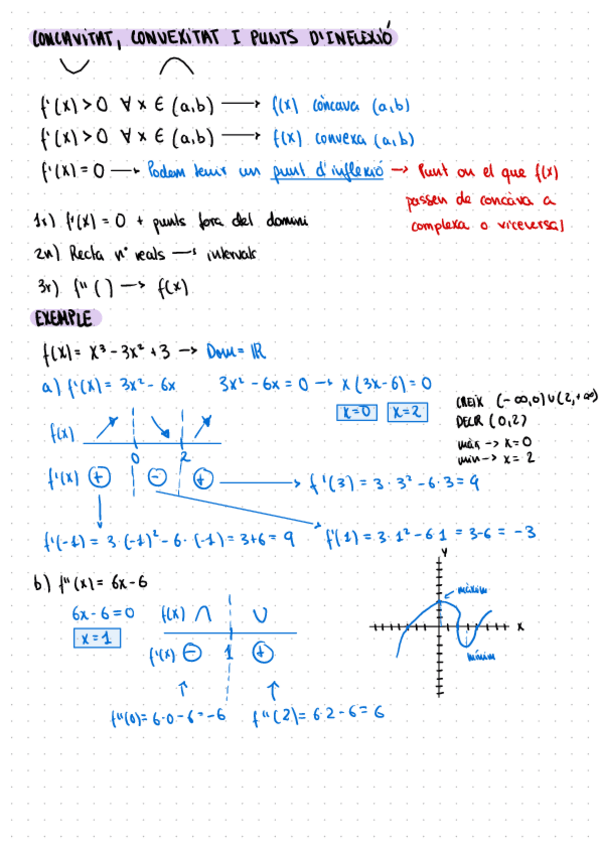 CONCAVITAT, CONVEXITAT I PUNTS D'INFLEXIÓ
f'(x) > 0 ∀ x ∈ (a,b) → f(x) còncava (a,b)
f'(x) > 0 ∀ x ∈ (a,b) → f(x) convexa (a,b)
f'(x) = 0 → Podem tenir un punt d'inflexió → Punt on el que f(x)
passen de concàva a
complexa o viceversa]
1r) f'(x) = 0 + punts fora del domini
2n) Recta nº reals → intervals
3r) f''( ) → f(x)
EXEMPLE
f(x) = x³ - 3x² + 3 → Dom = ℝ
a) f'(x) = 3x² - 6x 3x² - 6x = 0 → x(3x-6) = 0
x=0 x=2
CREIX (-∞,0)∪(2,+∞)
DECR (0,2)
màx → x=0
min → x=2
f(x)
0 2
f'(x) + - + → f'(3) = 3·3² - 6·3 = 9
f'(-1) = 3·(-1)² - 6·(-1) = 3+6 = 9 f'(1) = 3·1² - 6·1 = 3-6 = -3
b) f''(x) = 6x - 6
6x - 6 = 0 f(x) ∩ ∪
x=1
f''(x) - 1 +
f''(0) = 6·0 - 6 = -6 f''(2) = 6·2 - 6 = 6
y
màxim
x
mínim